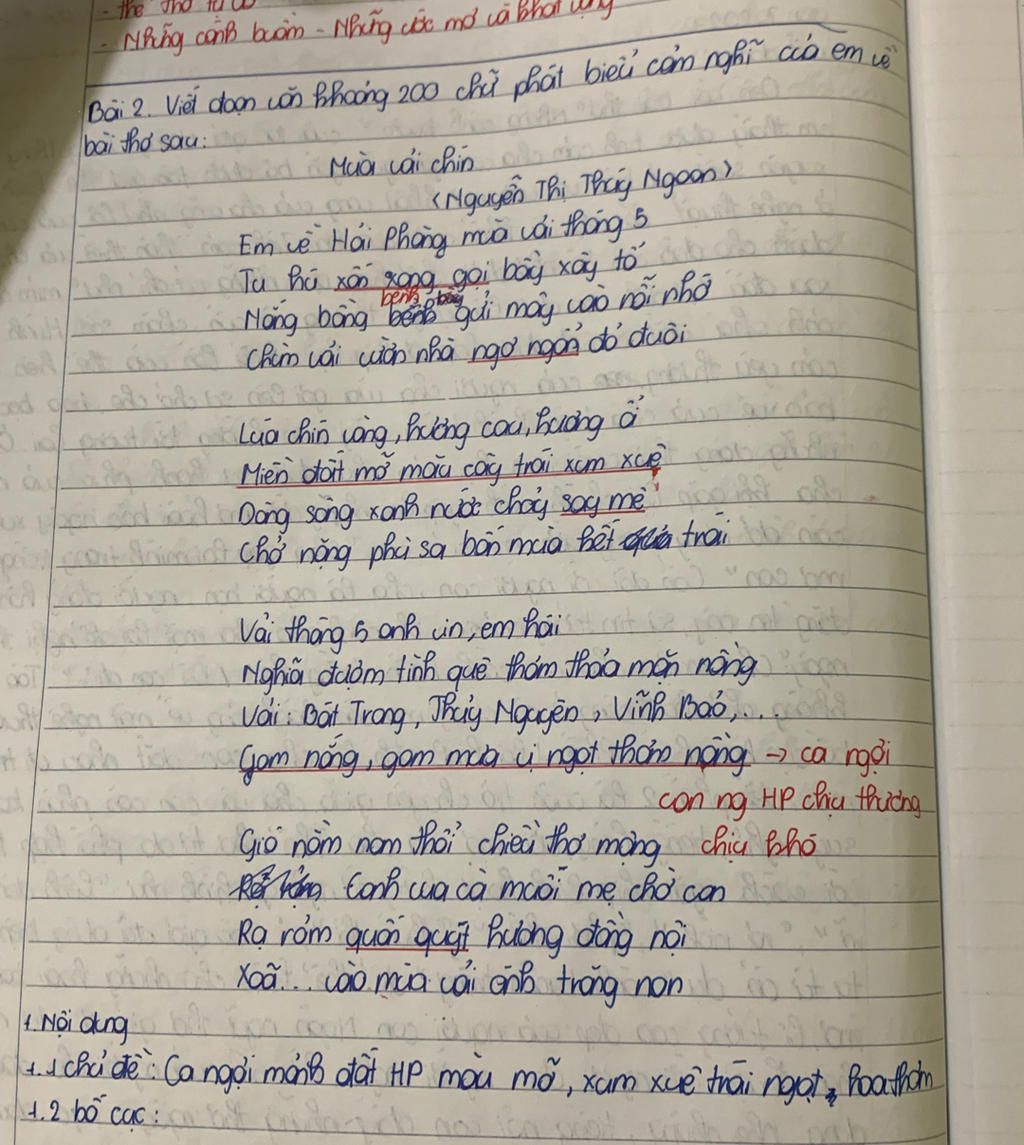 - thể thơ tự do
- Những cánh buồm - Những ước mơ và khát vọng
Bài 2. Viết đoạn văn khoảng 200 chữ phát biểu cảm nghĩ của em về
bài thơ sau:
Mùa vải chín
(Nguyễn Thị Thúy Ngoan)
Em về Hải Phòng mùa vải tháng 5
Tu hú xốn xang gọi bầy xây tổ
bềnh bồng
Nắng bồng bềnh gửi mây vào nỗi nhớ
Chùm vải vườn nhà ngơ ngẩn đỏ đuôi
Lúa chín vàng, hương cau, hương ổi
Miền đất mỡ màu cây trái xum xuê
Dòng sông xanh nước chảy say mê
Chở nặng phù sa bốn mùa kết trái
Vải tháng 5 anh vin, em hái
Nghĩa đượm tình quê thơm thảo mặn nồng
Vải: Bát Trang, Thủy Nguyên, Vĩnh Bảo,...
Gom nắng, gom mưa vị ngọt thơm nồng → ca ngợi
con ng HP chịu thương
Gió nồm nam thổi chiều thơ mộng chịu khó
Canh cua cà muối mẹ chờ con
Rạ rơm quấn quýt hương đồng nội
Xoã... vào mùa vải ánh trăng non
1. Nội dung
1.1 chủ đề: Ca ngợi mảnh đất HP màu mỡ, xum xuê trái ngọt, hoa thơm
1.2 bố cục: